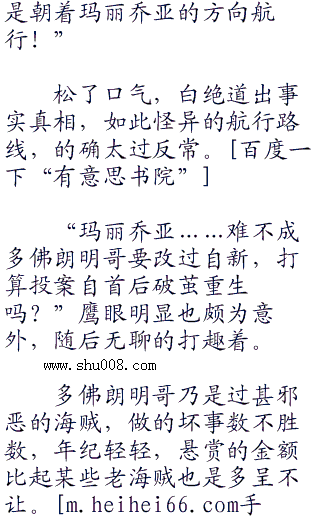 是朝着玛丽乔亚的方向航
行！”
松了口气，白绝道出事
实真相，如此怪异的航行路
线，的确太过反常。[百度一
下“有意思书院”]
“玛丽乔亚……难不成
多佛朗明哥要改过自新，打
算投案自首后破茧重生
吗？”鹰眼明显也颇为意
外，随后无聊的打趣着。
www.shu008.com
多佛朗明哥乃是过甚邪
恶的海贼，做的坏事数不胜
数，年纪轻轻，悬赏的金额
比起某些老海贼也是多呈不
让。[m.heihei66.com手